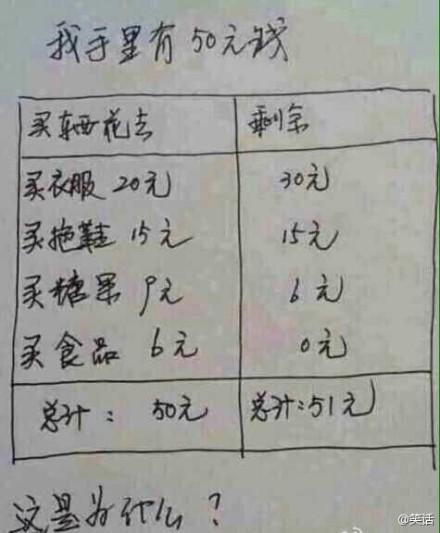 我手里有50元钱
买东西花去 剩余
买衣服 20元 30元
买拖鞋 15元 15元
买糖果 9元 6元
买食品 6元 0元
总计: 50元 总计:51元
这是为什么?
@笑话